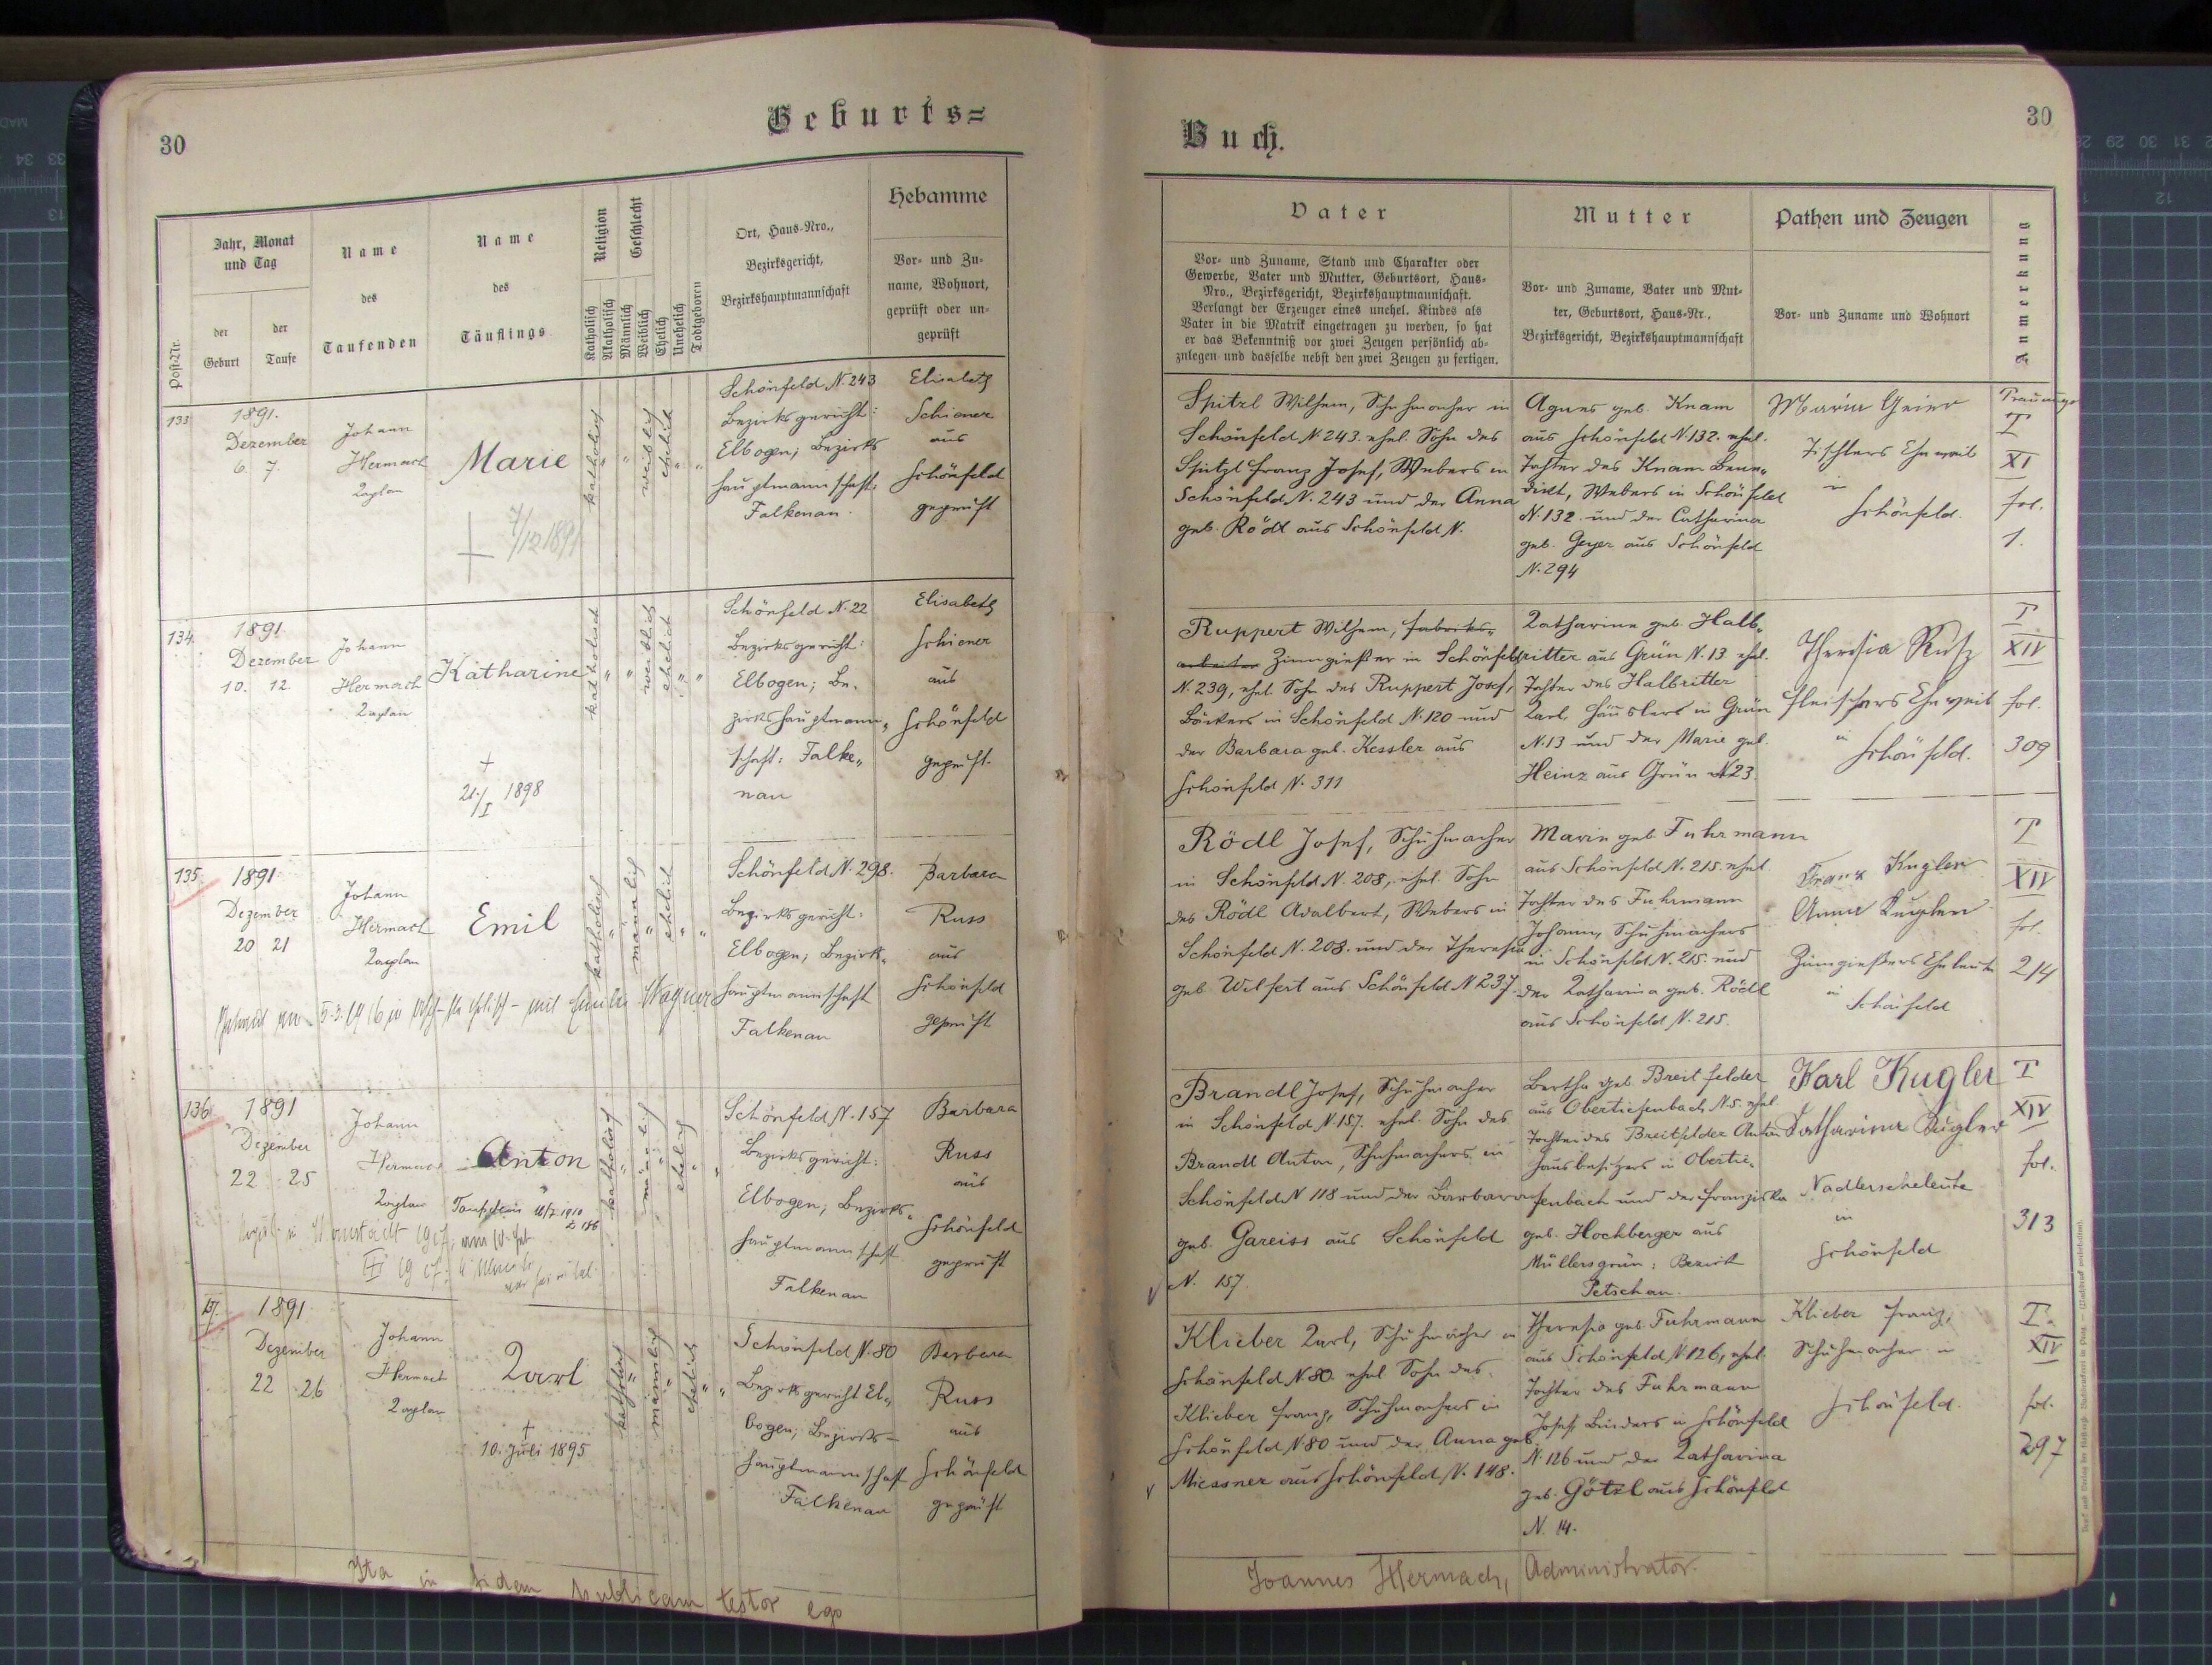 30
Geburts=
Post-Nr.
Jahr, Monat
und Tag
der
Geburt
der
Taufe
Name
des
Taufenden
Name
des
Täuflings
Religion
Katholisch
Akatholisch
Geschlecht
Männlich
Weiblich
Ehelich
Unehelich
Todtgeboren
Ort, Haus-Nro.,
Bezirksgericht,
Bezirkshauptmannschaft
Hebamme
Vor- und Zu-
name, Wohnort,
geprüft oder un-
geprüft
133
1891.
Dezember
6. 7.
Johann
Hermach
Kaplan
Marie
7/12 1891
katholisch
weiblich
ehelich
Schönfeld N. 243
Bezirksgericht:
Elbogen; Bezirks
hauptmannschaft:
Falkenau.
Elisabeth
Schiener
aus
Schönfeld
geprüft
134.
1891.
Dezember
10. 12.
Johann
Hermach
Kaplan
Katharine
†
21./I 1898
katholisch
weiblich
ehelich
Schönfeld N. 22
Bezirksgericht:
Elbogen; Be-
zirkshauptmann-
schaft: Falke-
nau
Elisabeth
Schiener
aus
Schönfeld
geprüft.
135.
1891
Dezember
20 21
Johann
Hermach
Kaplan
Emil
katholisch
männlich
ehelich
mit Emilie Wagner
Schönfeld N. 298.
Bezirksgericht:
Elbogen; Bezirks-
hauptmannschaft
Falkenau
Barbara
Russ
aus
Schönfeld
geprüft
136.
1891
Dezember
22 25
Johann
Hermach
Kaplan
Anton
Taufschein
katholisch
männlich
ehelich
Schönfeld N. 157
Bezirksgericht:
Elbogen; Bezirks-
hauptmannschaft
Falkenau
Barbara
Russ
aus
Schönfeld
geprüft
137.
1891
Dezember
22 26
Johann
Hermach
Kaplan
Karl
†
10. Juli 1895
katholisch
männlich
ehelich
Schönfeld N. 80
Bezirksgericht El-
bogen; Bezirks-
hauptmannschaft
Falkenau
Barbara
Russ
aus
Schönfeld
geprüft
Ita in fidem publicam testor ego
Buch.
30
Vater
Vor- und Zuname, Stand und Charakter oder
Gewerbe, Vater und Mutter, Geburtsort, Haus-
Nro., Bezirksgericht, Bezirkshauptmannschaft.
Verlangt der Erzeuger eines unehel. Kindes als
Vater in die Matrik eingetragen zu werden, so hat
er das Bekenntniß vor zwei Zeugen persönlich ab-
zulegen und dasselbe nebst den zwei Zeugen zu fertigen.
Mutter
Vor- und Zuname, Vater und Mut-
ter, Geburtsort, Haus-Nr.,
Bezirksgericht, Bezirkshauptmannschaft
Pathen und Zeugen
Vor- und Zuname und Wohnort
Anmerkung
Spitzl Wilhem, Schuhmacher in
Schönfeld N. 243. ehel. Sohn des
Spitzl Franz Josef, Webers in
Schönfeld N. 243 und der Anna
geb. Rödl aus Schönfeld N.
Agnes geb. Knam
aus Schönfeld N. 132. ehel.
Tochter des Knam Bene-
dikt, Webers in Schönfeld
N. 132. und der Catharina
geb. Geyer aus Schönfeld
N. 294
Maria Geier
Tischlers Eheweib
in
Schönfeld.
Trauungs
T
XI
fol.
1.
Ruppert Wilhem, Fabriks-
arbeiter Zinngießer in Schönfeld
N. 239, ehel. Sohn des Ruppert Josef,
Bäckers in Schönfeld N. 120 und
der Barbara geb. Kessler aus
Schönfeld N. 311
Katharina geb. Halb-
ritter aus Grün N. 13 ehel.
Tochter des Halbritter
Karl, Häuslers in Grün
N. 13 und der Marie geb.
Heinz aus Grün N. 23.
Theresia
Fleischers Eheweib
in
Schönfeld.
T
XIV
fol.
309
Rödl Josef, Schuhmacher
in Schönfeld N. 208, ehel. Sohn
des Rödl Adalbert, Webers in
Schönfeld N. 208. und der Theresia
geb. Welfert aus Schönfeld N 237.
Marie geb. Fuhrmann
aus Schönfeld N. 215. ehel.
Tochter des Fuhrmann
Johann, Schuhmachers
in Schönfeld N. 215. und
der Katharina geb. Rödl
aus Schönfeld N. 215.
Franz Kugler
Anna Kugler
Zinngießers Eheleute
in
Schönfeld
T
XIV
fol.
214
Brandl Josef, Schuhmacher
in Schönfeld N. 157. ehel. Sohn des
Brandl Anton, Schuhmachers in
Schönfeld N 118 und der Barbara
geb. Gareiss aus Schönfeld
N. 157.
Bertha geb. Breitfelder
aus Obertiefenbach N. 5. ehel.
Tochter des Breitfelder Anton
Hausbesitzers in Obertie-
fenbach und der Franziska
geb. Hochberger aus
Müllersgrün; Bezirk
Petschau.
Karl Kugler
Katharina Kugler
Nadlerseheleute
in
Schönfeld
T
XIV
fol.
313
Klieber Karl, Schuhmacher in
Schönfeld N. 80. ehel. Sohn des
Klieber Franz, Schuhmachers in
Schönfeld N. 80 und der Anna geb.
Miessner aus Schönfeld N. 148.
Theresia geb. Fuhrmann
aus Schönfeld N 126, ehel.
Tochter des Fuhrmann
Josef, Binders in Schönfeld
N. 126 und der Katharina
geb. Götzl aus Schönfeld
N. 14.
Klieber Franz,
Schuhmacher in
Schönfeld.
T.
XIV
fol.
297
Joannes Hermach, Administrator.